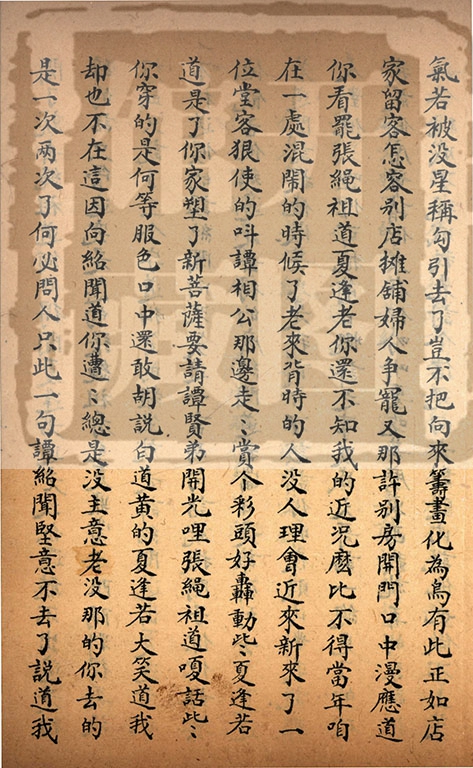 氣若被没星稱勾引去了豈不把向來籌畫化為烏有此正如店
家留客怎容别店攤舖婦人争寵又那許别房開門口中漫應道
你看罷張繩祖道夏逢老你還不知我的近况麽比不得當年咱
在一處混鬧的時候了老來背時的人没人理會近來新來了一
位堂客狠使的呌譚相公那邊走〻賞个彩頭好轟動些〻夏逢若
道是了你家塑了新菩薩要請譚賢弟開光哩張繩祖道嗄話些〻
你穿的是何等服色口中還敢胡説白道黄的夏逢若大笑道我
却也不在這因向紹聞道你遭〻總是没主意老没那的你去的
是一次兩次了何必問人只此一句譚紹聞堅意不去了説道我